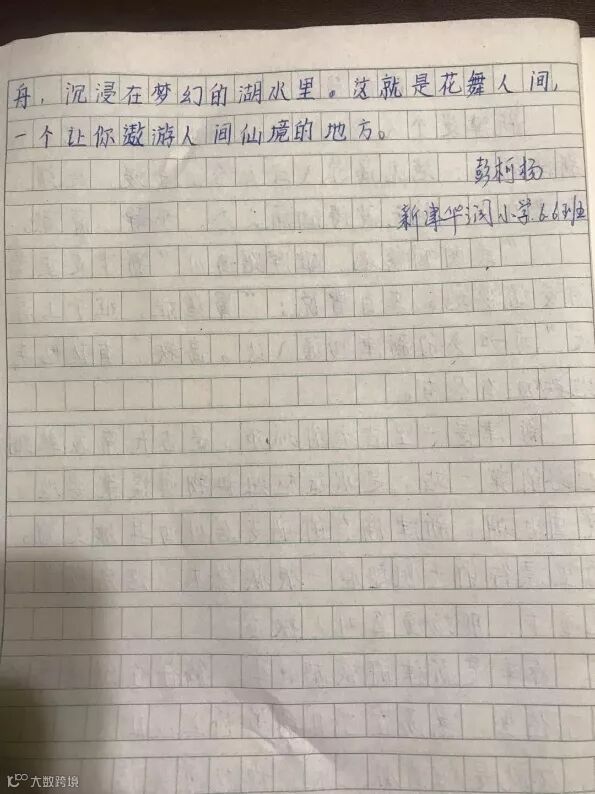 舟，沉浸在梦幻的湖水里。这就是花舞人间，
一个让你遨游人间仙境的地方。
彭柯杨
新津华润小学6.6班
大数跨境